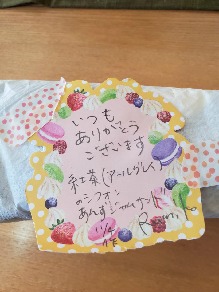 いつも
ありがとう
ございます
紅茶(アールグレイ)
のシフォン
あんずジャムサンド